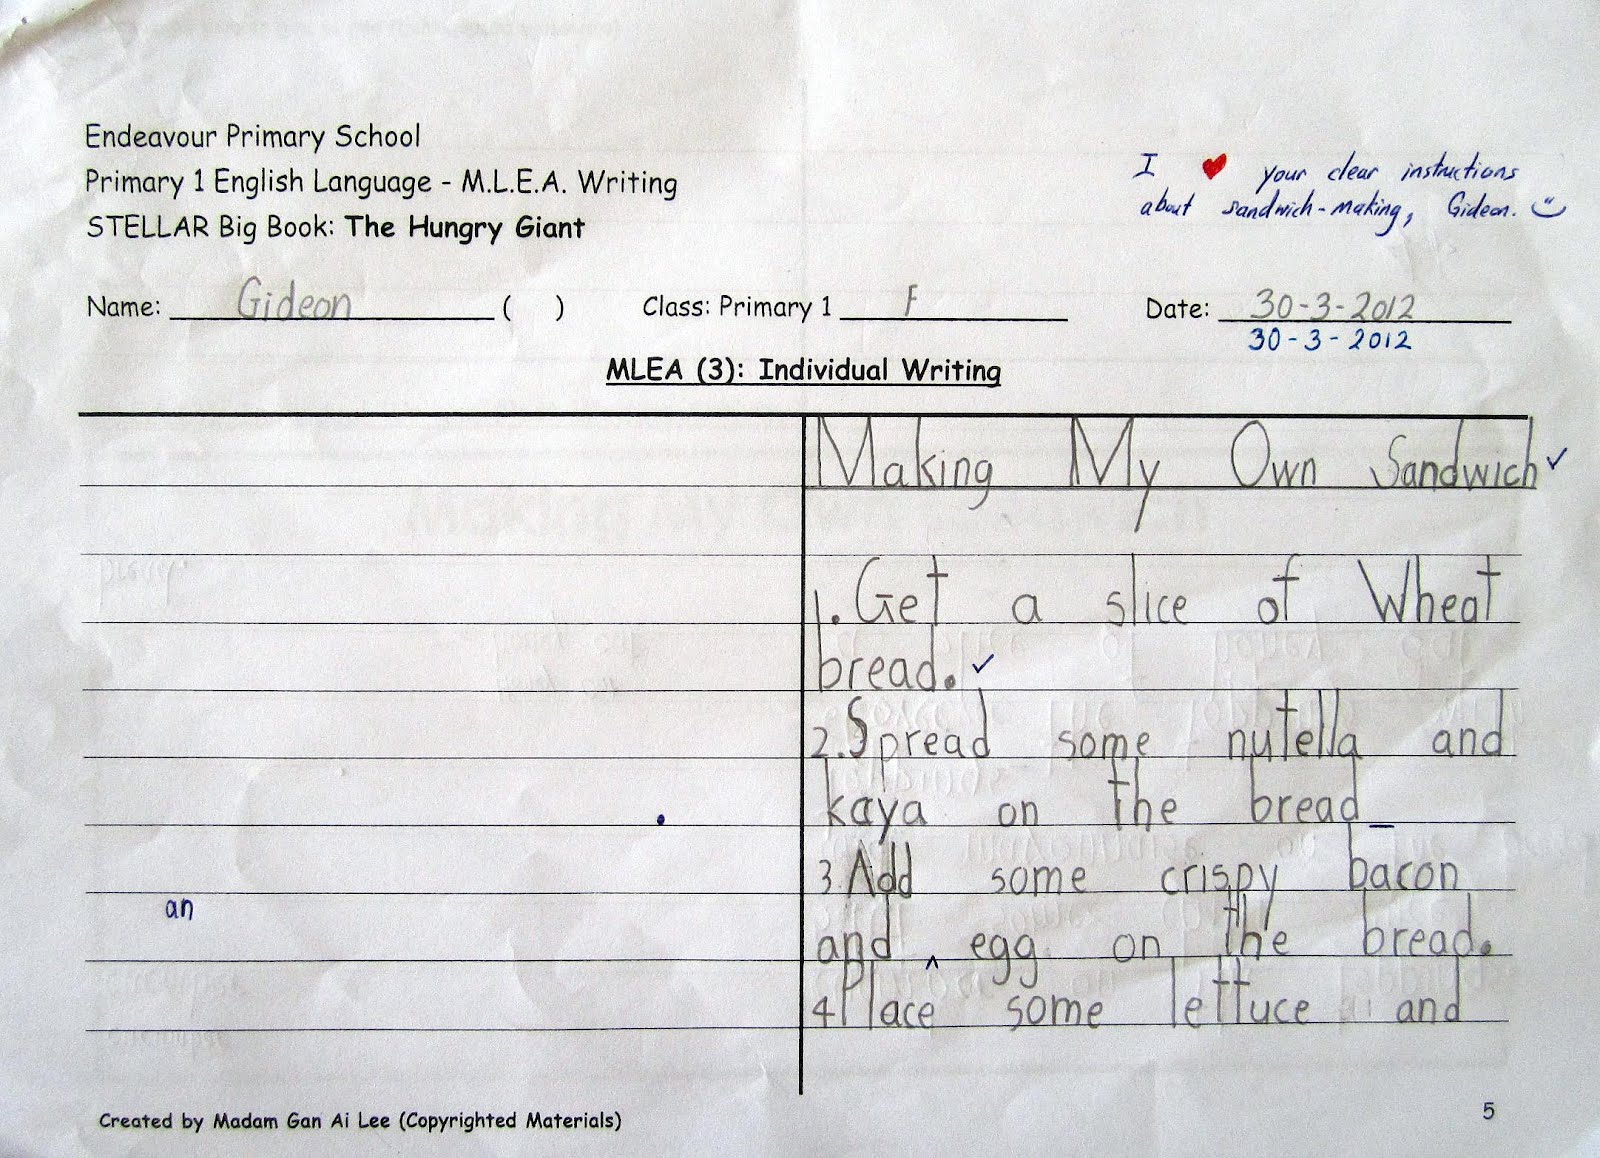 Endeavour Primary School
Primary 1 English Language - M.L.E.A. Writing
STELLAR Big Book: The Hungry Giant
I ♥ your clear instructions
about sandwich-making, Gideon.
Name: Gideon ( ) Class: Primary 1 F Date: 30-3-2012
30-3-2012
MLEA (3): Individual Writing
Making My Own Sandwich ✓
1. Get a slice of Wheat
bread. ✓
2. Spread some nutella and
kaya on the bread
.
3 Add some crispy bacon
an
and ^ egg on the bread.
4 Place some lettuce and
Created by Madam Gan Ai Lee (Copyrighted Materials)
5